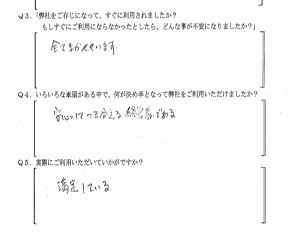 Q3.「弊社をご存じになって、すぐに利用されましたか？
もしすぐにご利用にならなかったとしたら、どんな事が不安になりましたか？」
全てまかせています
Q4.いろいろな車屋がある中で、何が決め手となって弊社をご利用いただけましたか？
安心して
である
Q5.実際にご利用いただいていかがですか？
満足している